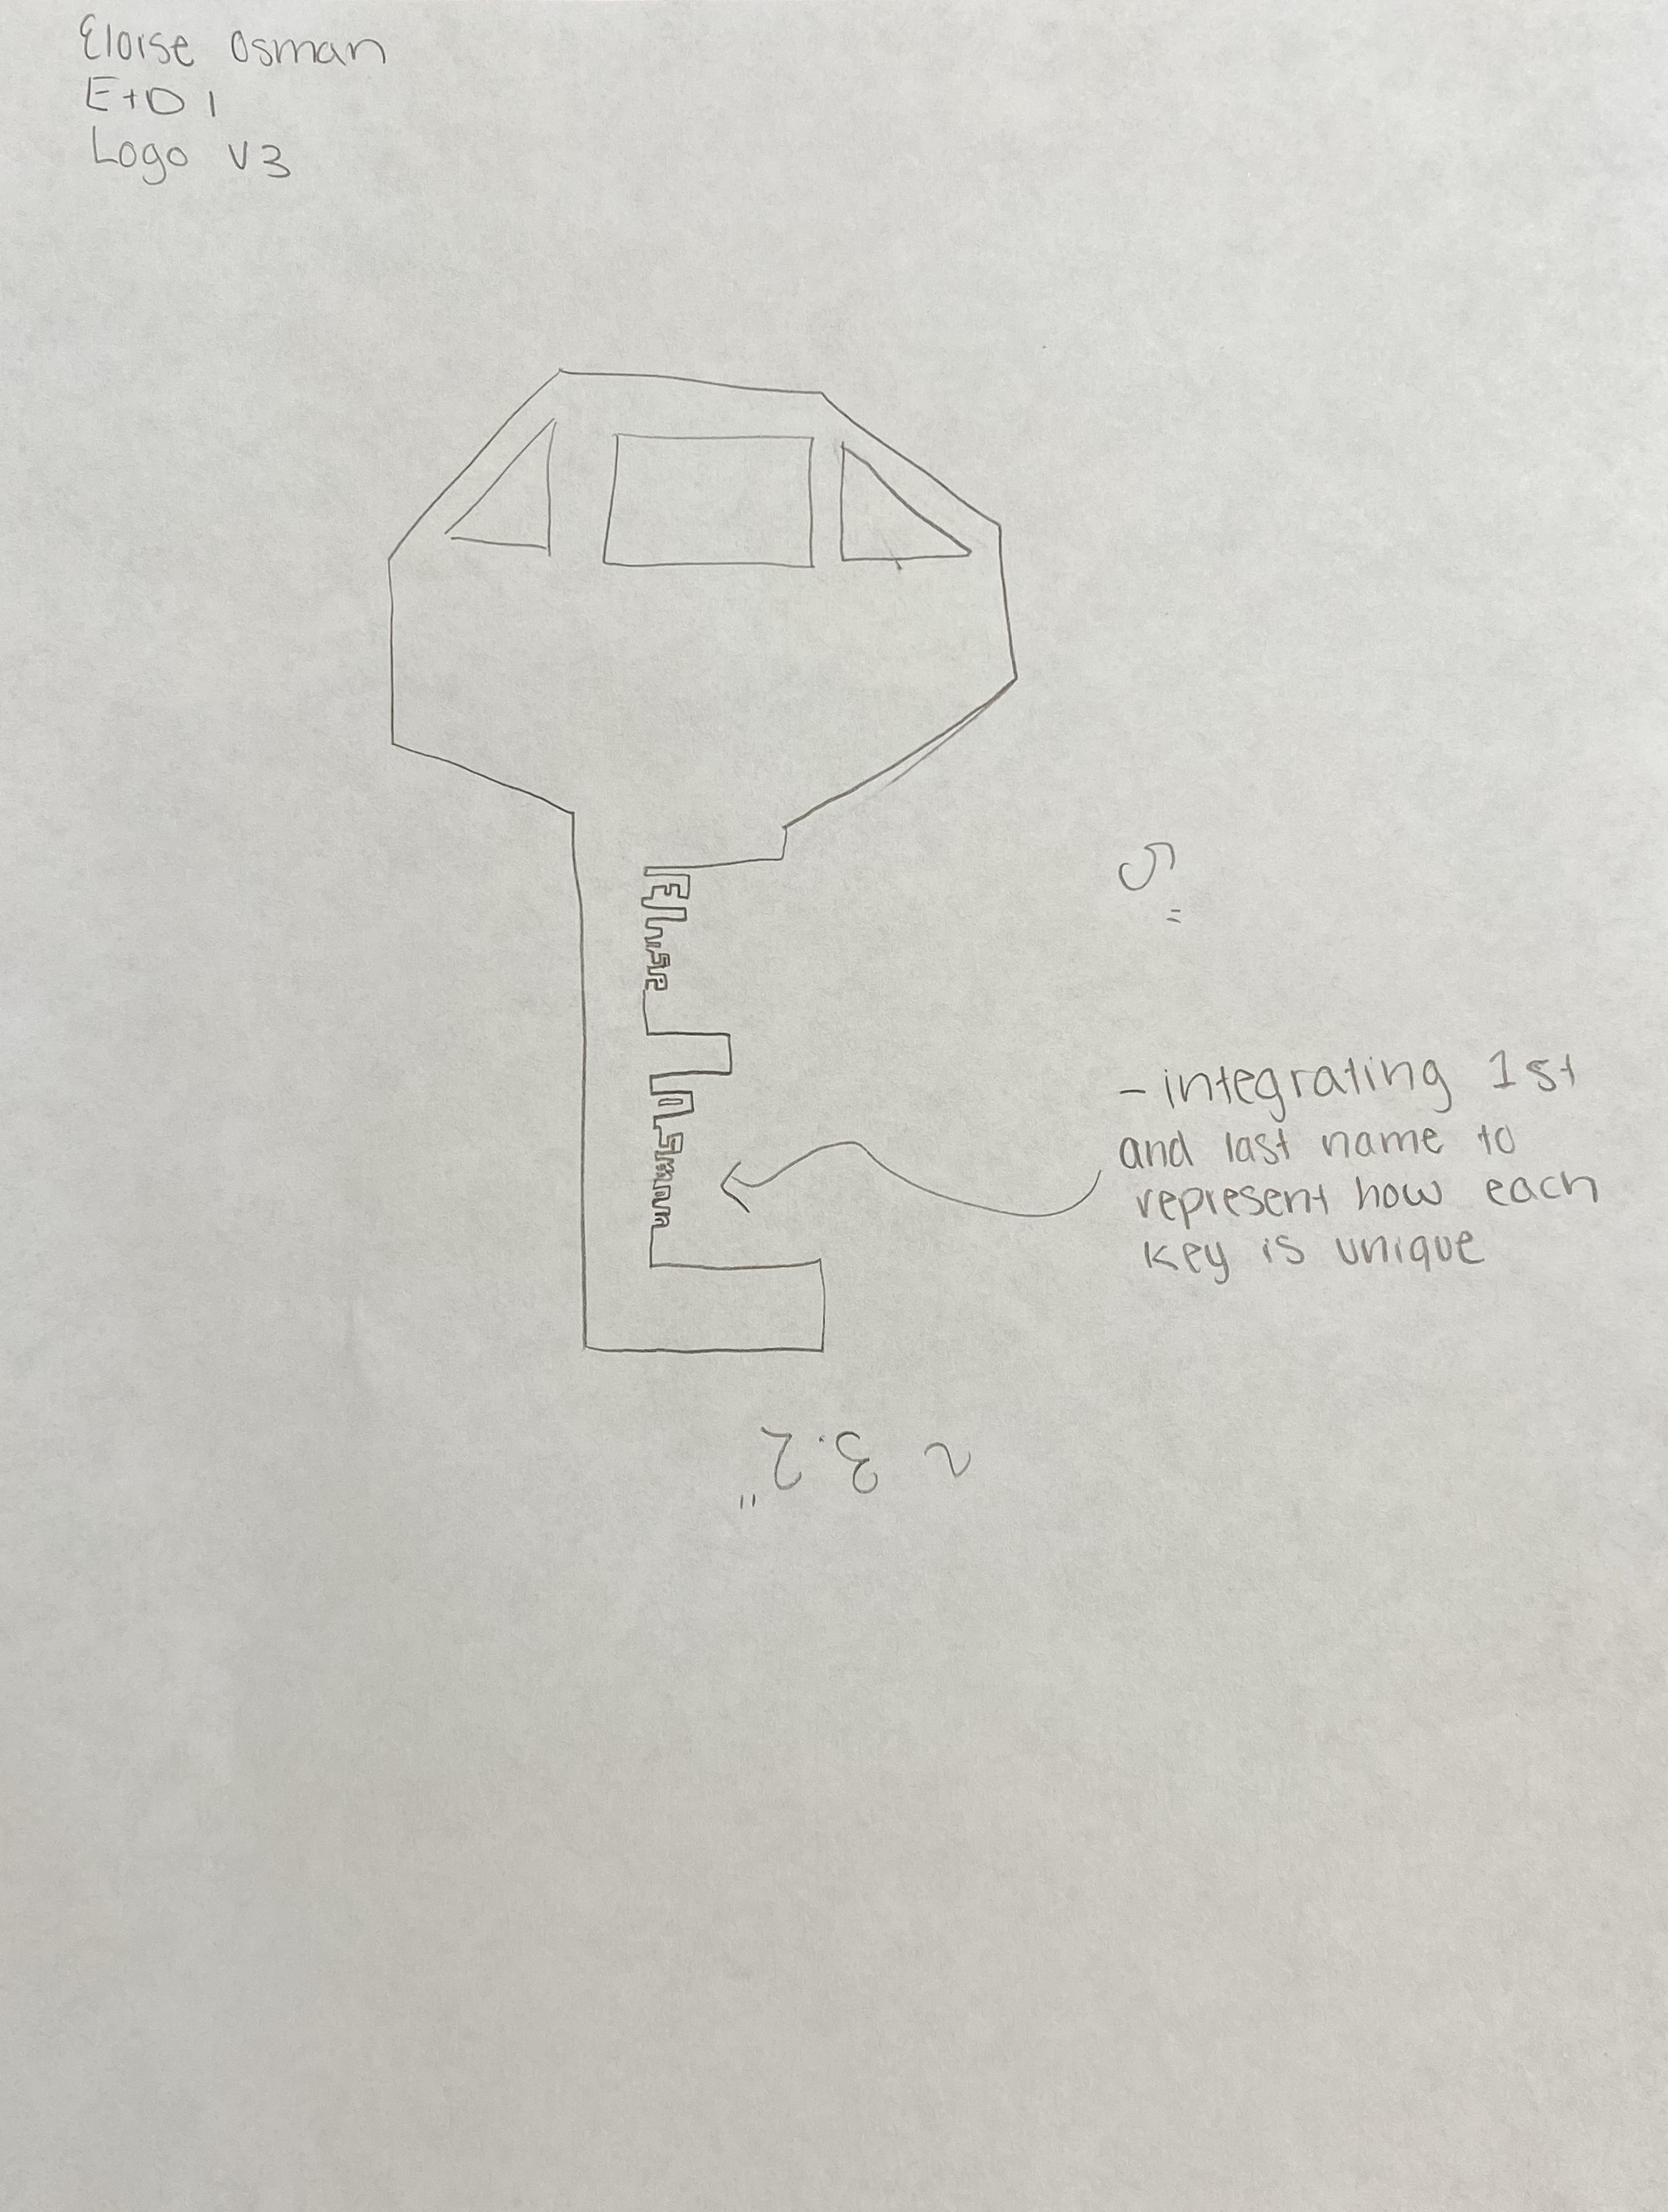 Eloise Osman
E+D 1
Logo V3
Eloise
5"
Osman
- integrating 1st
and last name to
represent how each
key is unique
~ 3.2"